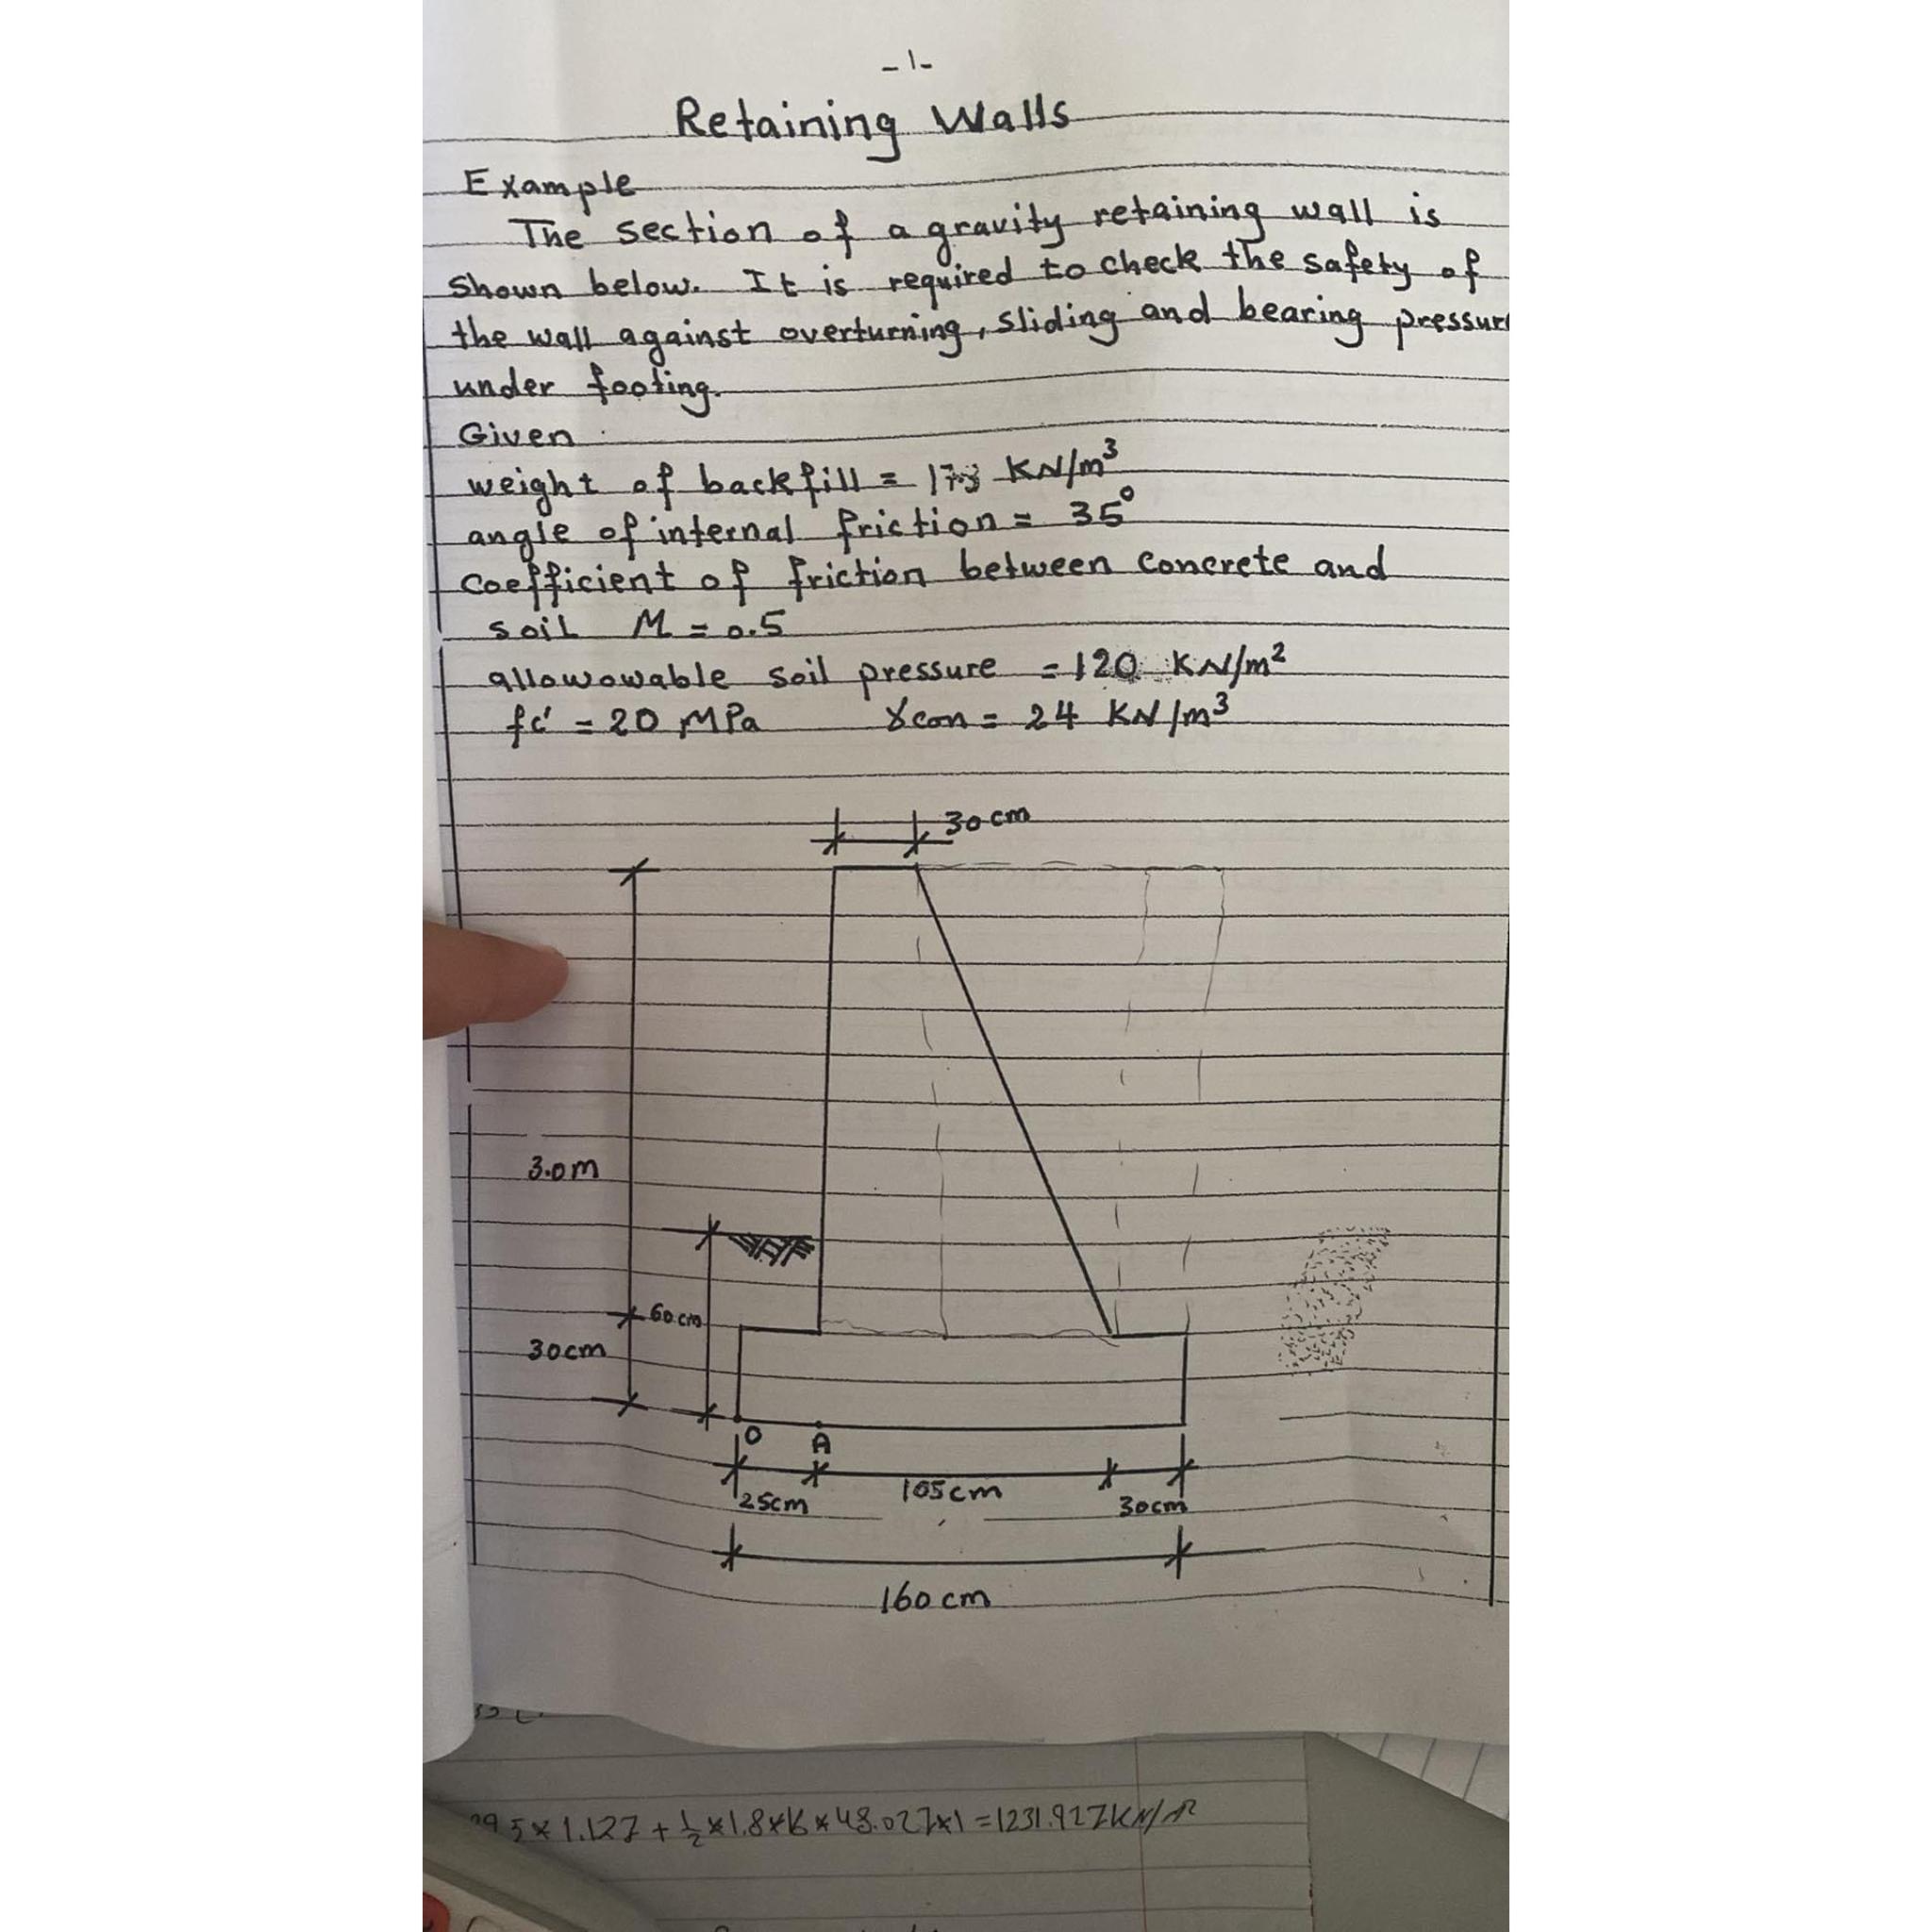 -1-
Retaining Walls
Example
The section of a gravity retaining wall is
shown below. It is required to check the safety of
the wall against overturning, sliding and bearing pressur
under footing.
Given
weight of backfill = KN/m³
angle of internal friction = 35°
Coefficient of friction between Concrete and
soil M = 0.5
allowowable soil pressure = 120 KN/m²
fc' = 20 MPa γcon = 24 KN/m³
30 cm
3.0m
60 cm
30cm
O A
25cm 105cm 30cm
160 cm
5*1.127 + ½*1.8*16*48.027*1 = 1231.927KN/